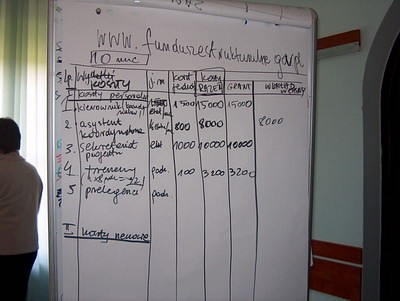 www.funduszestrukturalne.gov.pl
10 mc
Lp. Wydatki koszty j.m koszt jedno KOSZTY RAZEM GRANT WKŁAD WŁASNY
I koszty personelu
1 kierownik 1500 15000 15000
2. asystent koordynatora 800 8000 8000
3. sekretariat projektu etat 1000 10000 10000
4 trenerzy godz. 100 3200 3200
5 prelegenci godz.
II koszty